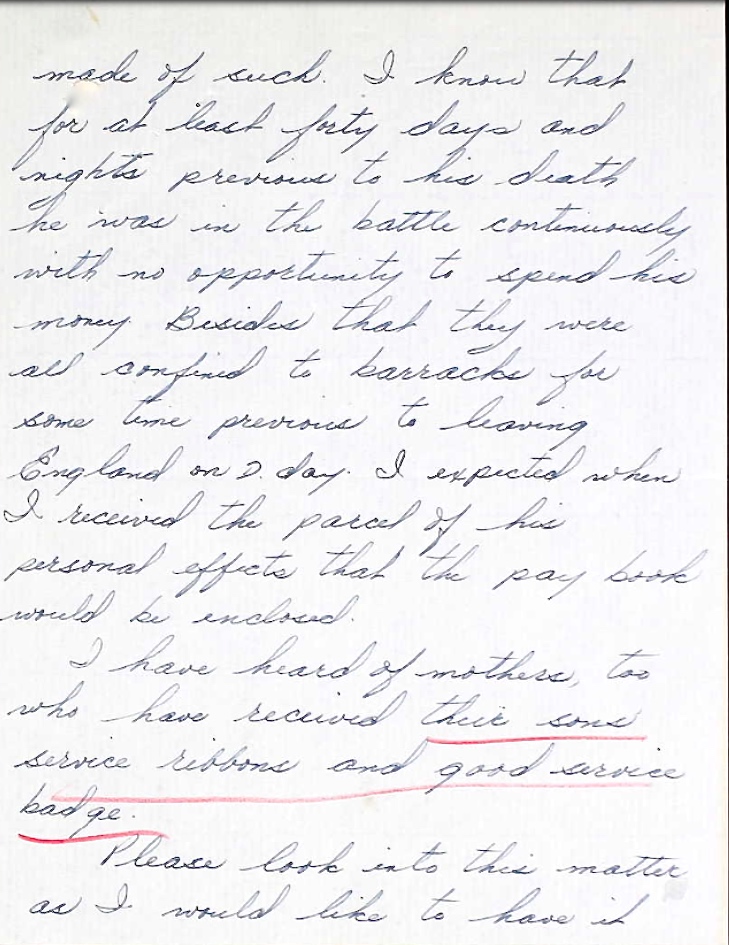 made of such. I know that
for at least forty days and
nights previous to his death
he was in the battle continuously
with no opportunity to spend his
money. Besides that they were
all confined to barracks for
some time previous to leaving
England on D. day. I expected when
I received the parcel of his
personal effects that the pay book
would be enclosed.
I have heard of mothers, too
who have received their sons
service ribbons and good service
badge.
Please look into this matter
as I would like to have it